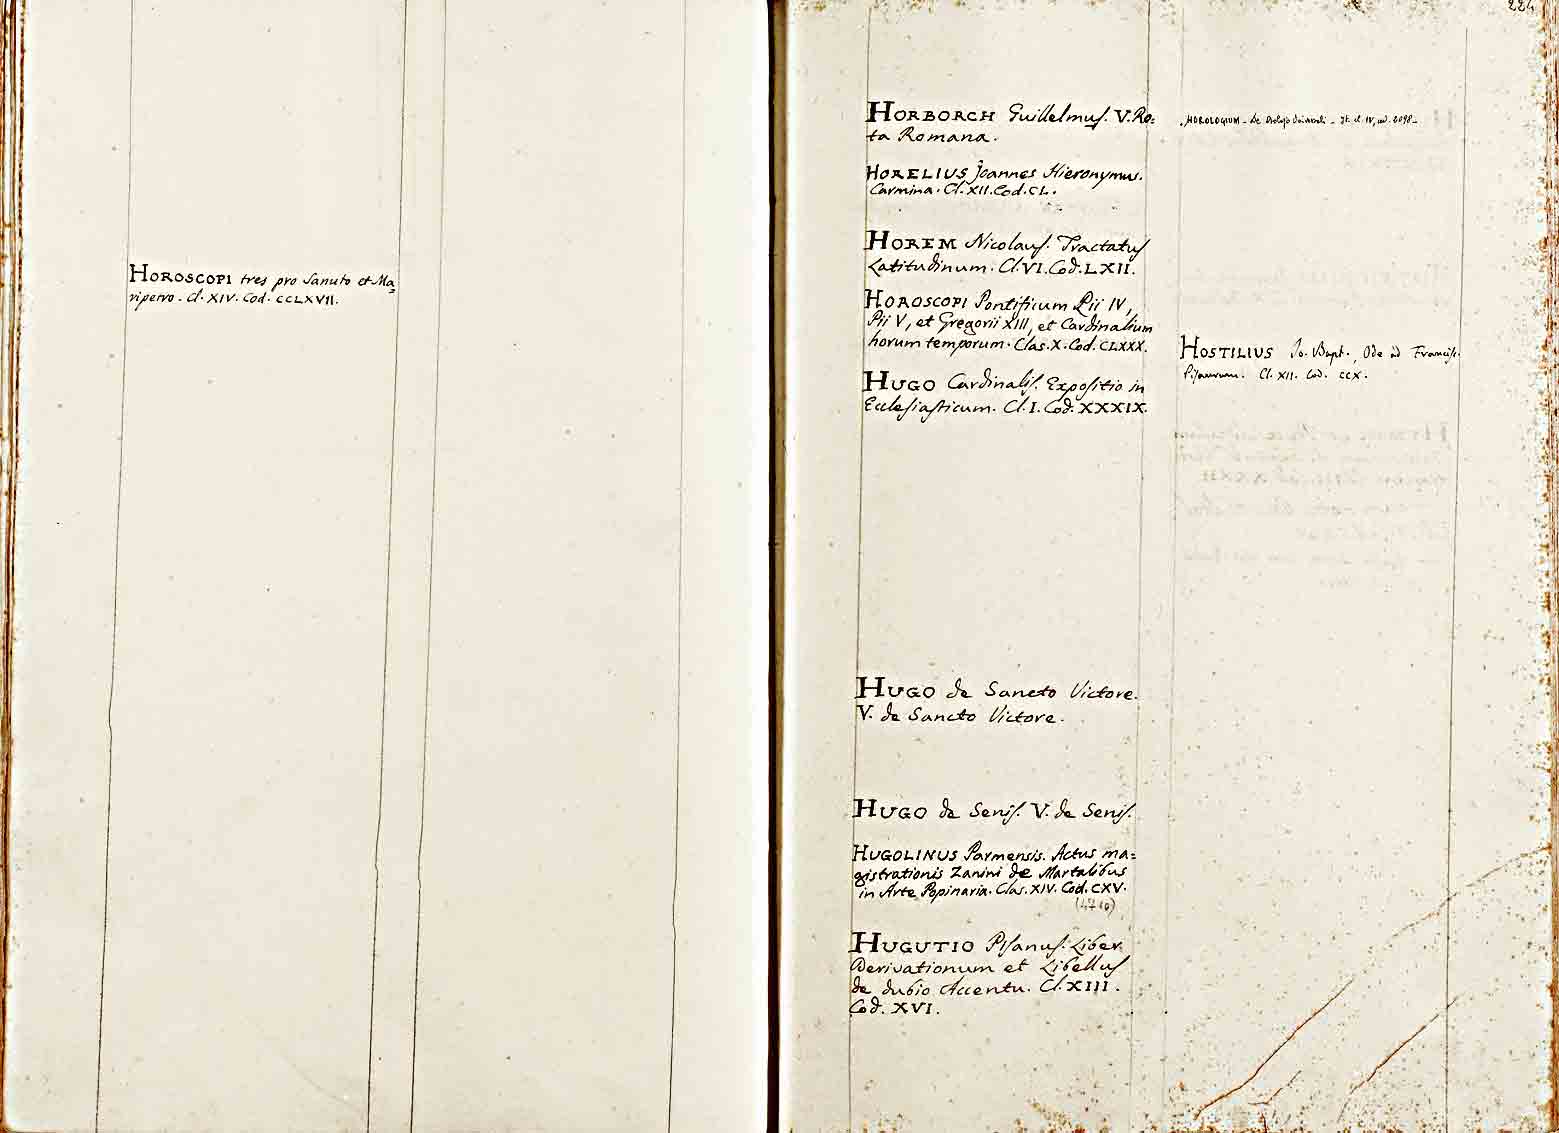 HOROSCOPI tres pro Sanuto et Ma=
ripetro. Cl. XIV. Cod. CCLXVII.
224
HORBORCH Guillelmus. V. Ro=
ta Romana.
HORELIUS Joannes Hieronymus.
Carmina. Cl. XII. Cod. CL.
HOREM Nicolaus. Tractatus
Latitudinum. Cl. VI. Cod. LXII.
HOROSCOPI Pontificum Pii IV,
Pii V, et Gregorii XIII, et Cardinalium
horum temporum. Clas. X. Cod. CLXXX.
HUGO Cardinalis. Expositio in
Ecclesiasticum. Cl. I. Cod. XXXIX.
HUGO de Sancto Victore.
V. de Sancto Victore.
HUGO de Senis. V. de Senis.
HUGOLINUS Parmensis. Actus ma=
gistrationis Zanini de Martalibus
in Arte Popinaria. Clas. XIV. Cod. CXV.
(4710)
HUGUTIO Pisanus. Liber
Derivationum et Libellus
de dubio Accentu. Cl. XIII.
Cod. XVI.
HOROLOGIUM - De - It. cl. IV, cod.
HOSTILIUS Jo. Bapt., Ode ad Francis.
Pisaurum. Cl. XII. Cod. CCX.